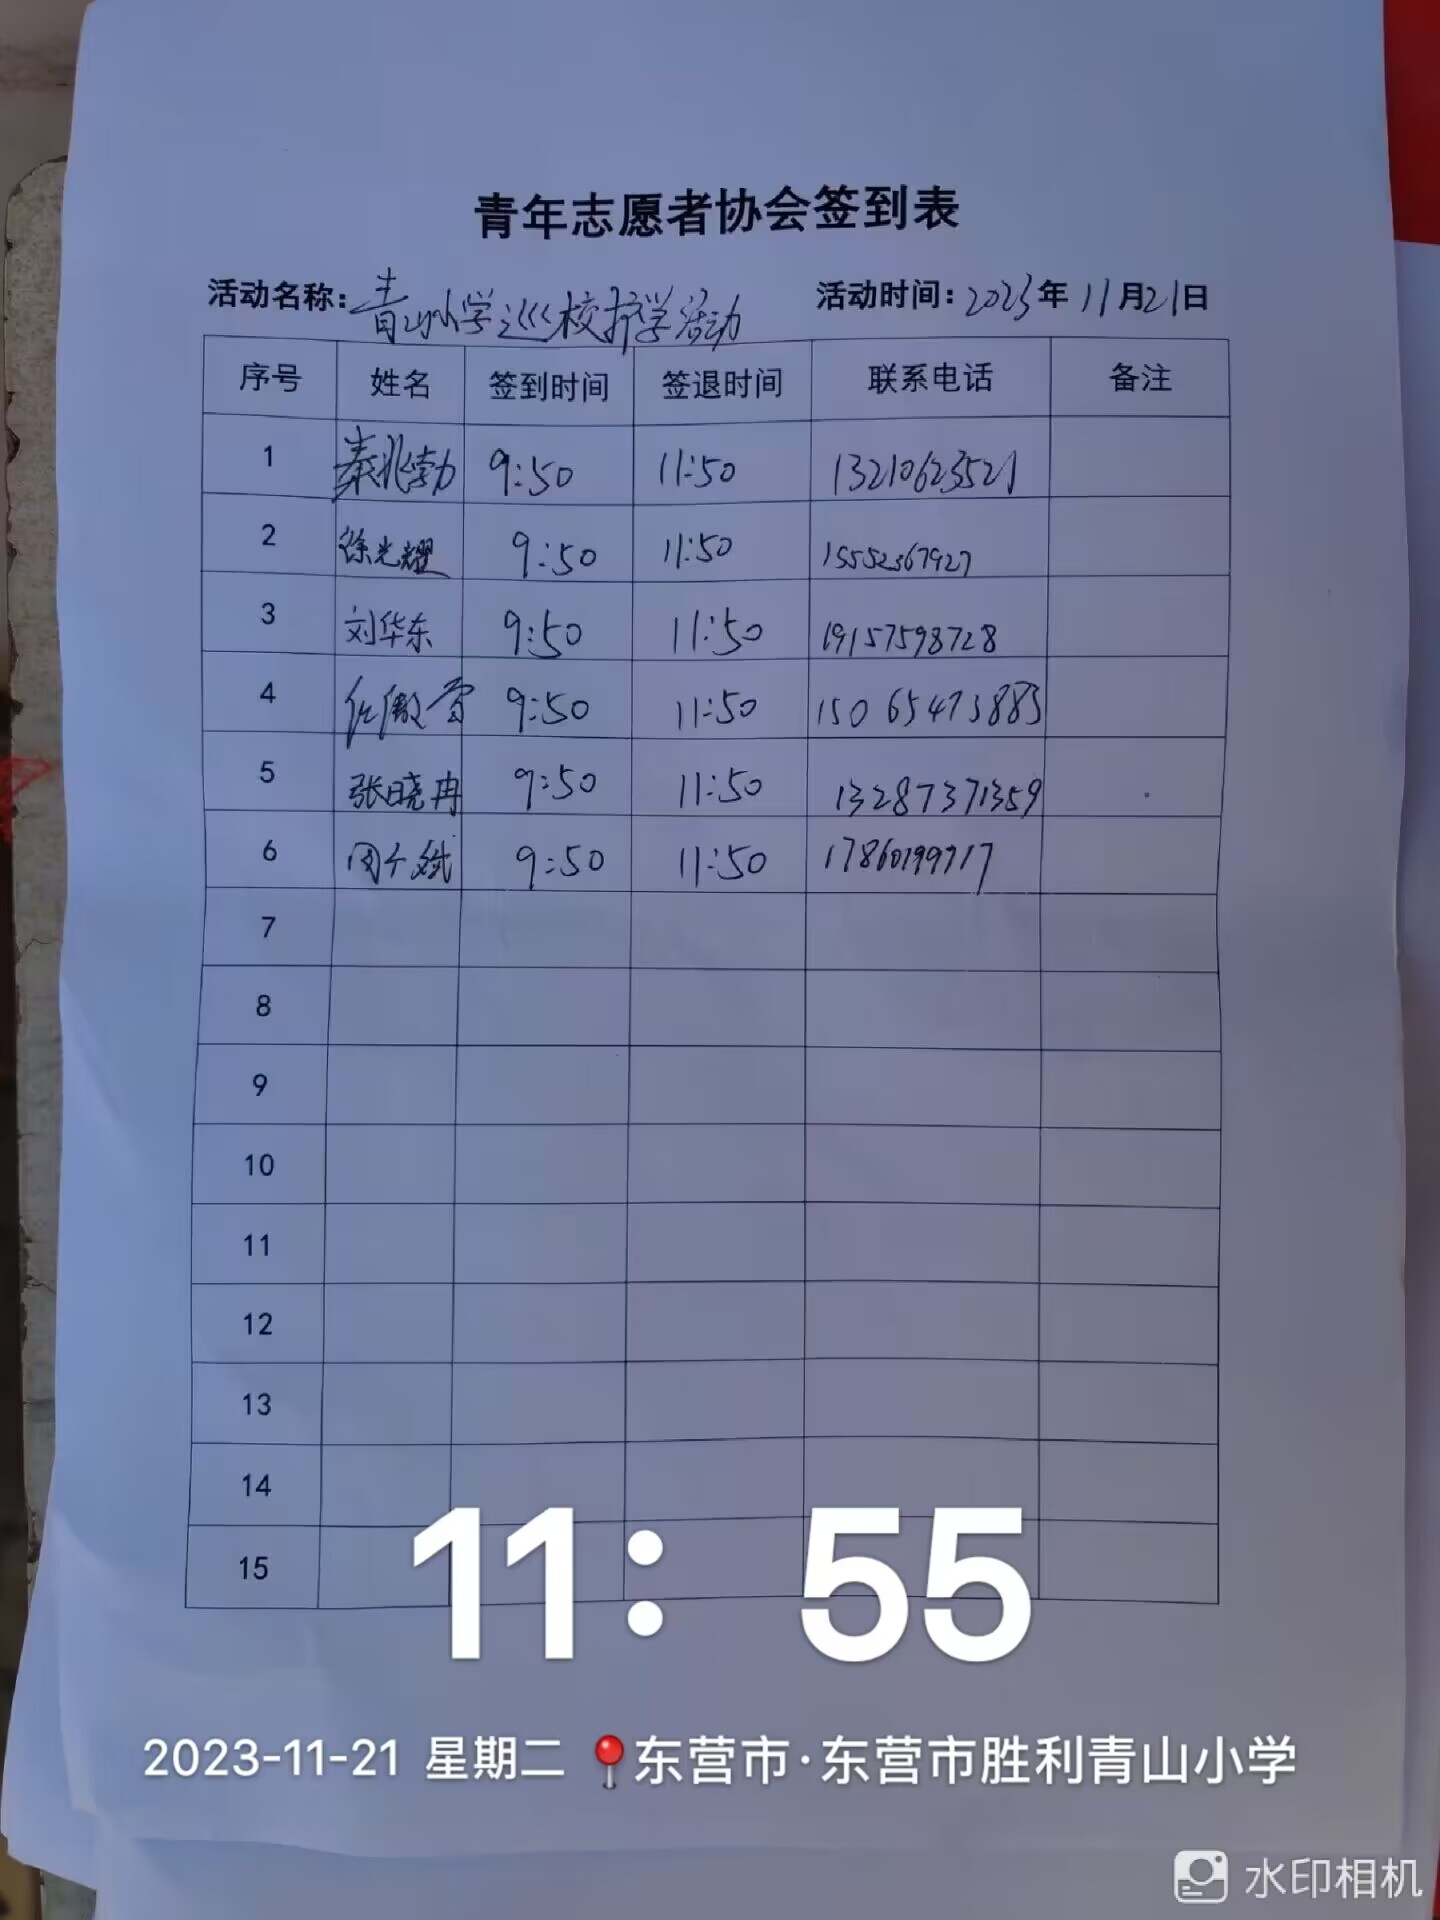 青年志愿者协会签到表
活动名称：青山小学巡校护学活动 活动时间：2023年11月21日
序号 姓名 签到时间 签退时间 联系电话 备注
1 秦兆勃 9:50 11:50 13210623521
2 徐光耀 9:50 11:50 15552367927
3 刘华东 9:50 11:50 19157598728
4 任傲雪 9:50 11:50 15065473883
5 张晓冉 9:50 11:50 13287371359
6 9:50 11:50 17860199717
7
8
9
10
11
12
13
14
15
11：55
2023-11-21 星期二 东营市·东营市胜利青山小学
水印相机